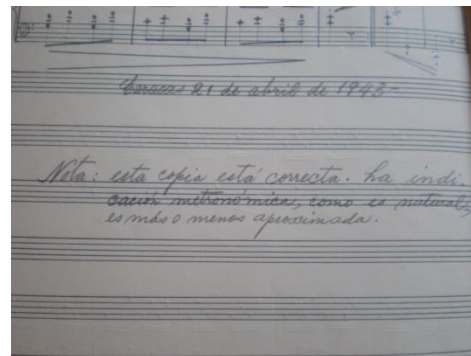 Caracas 21 de abril de 1943-
Nota: esta copia está correcta. La indi-
cación metronómica, como es natural,
es más o menos aproximada.